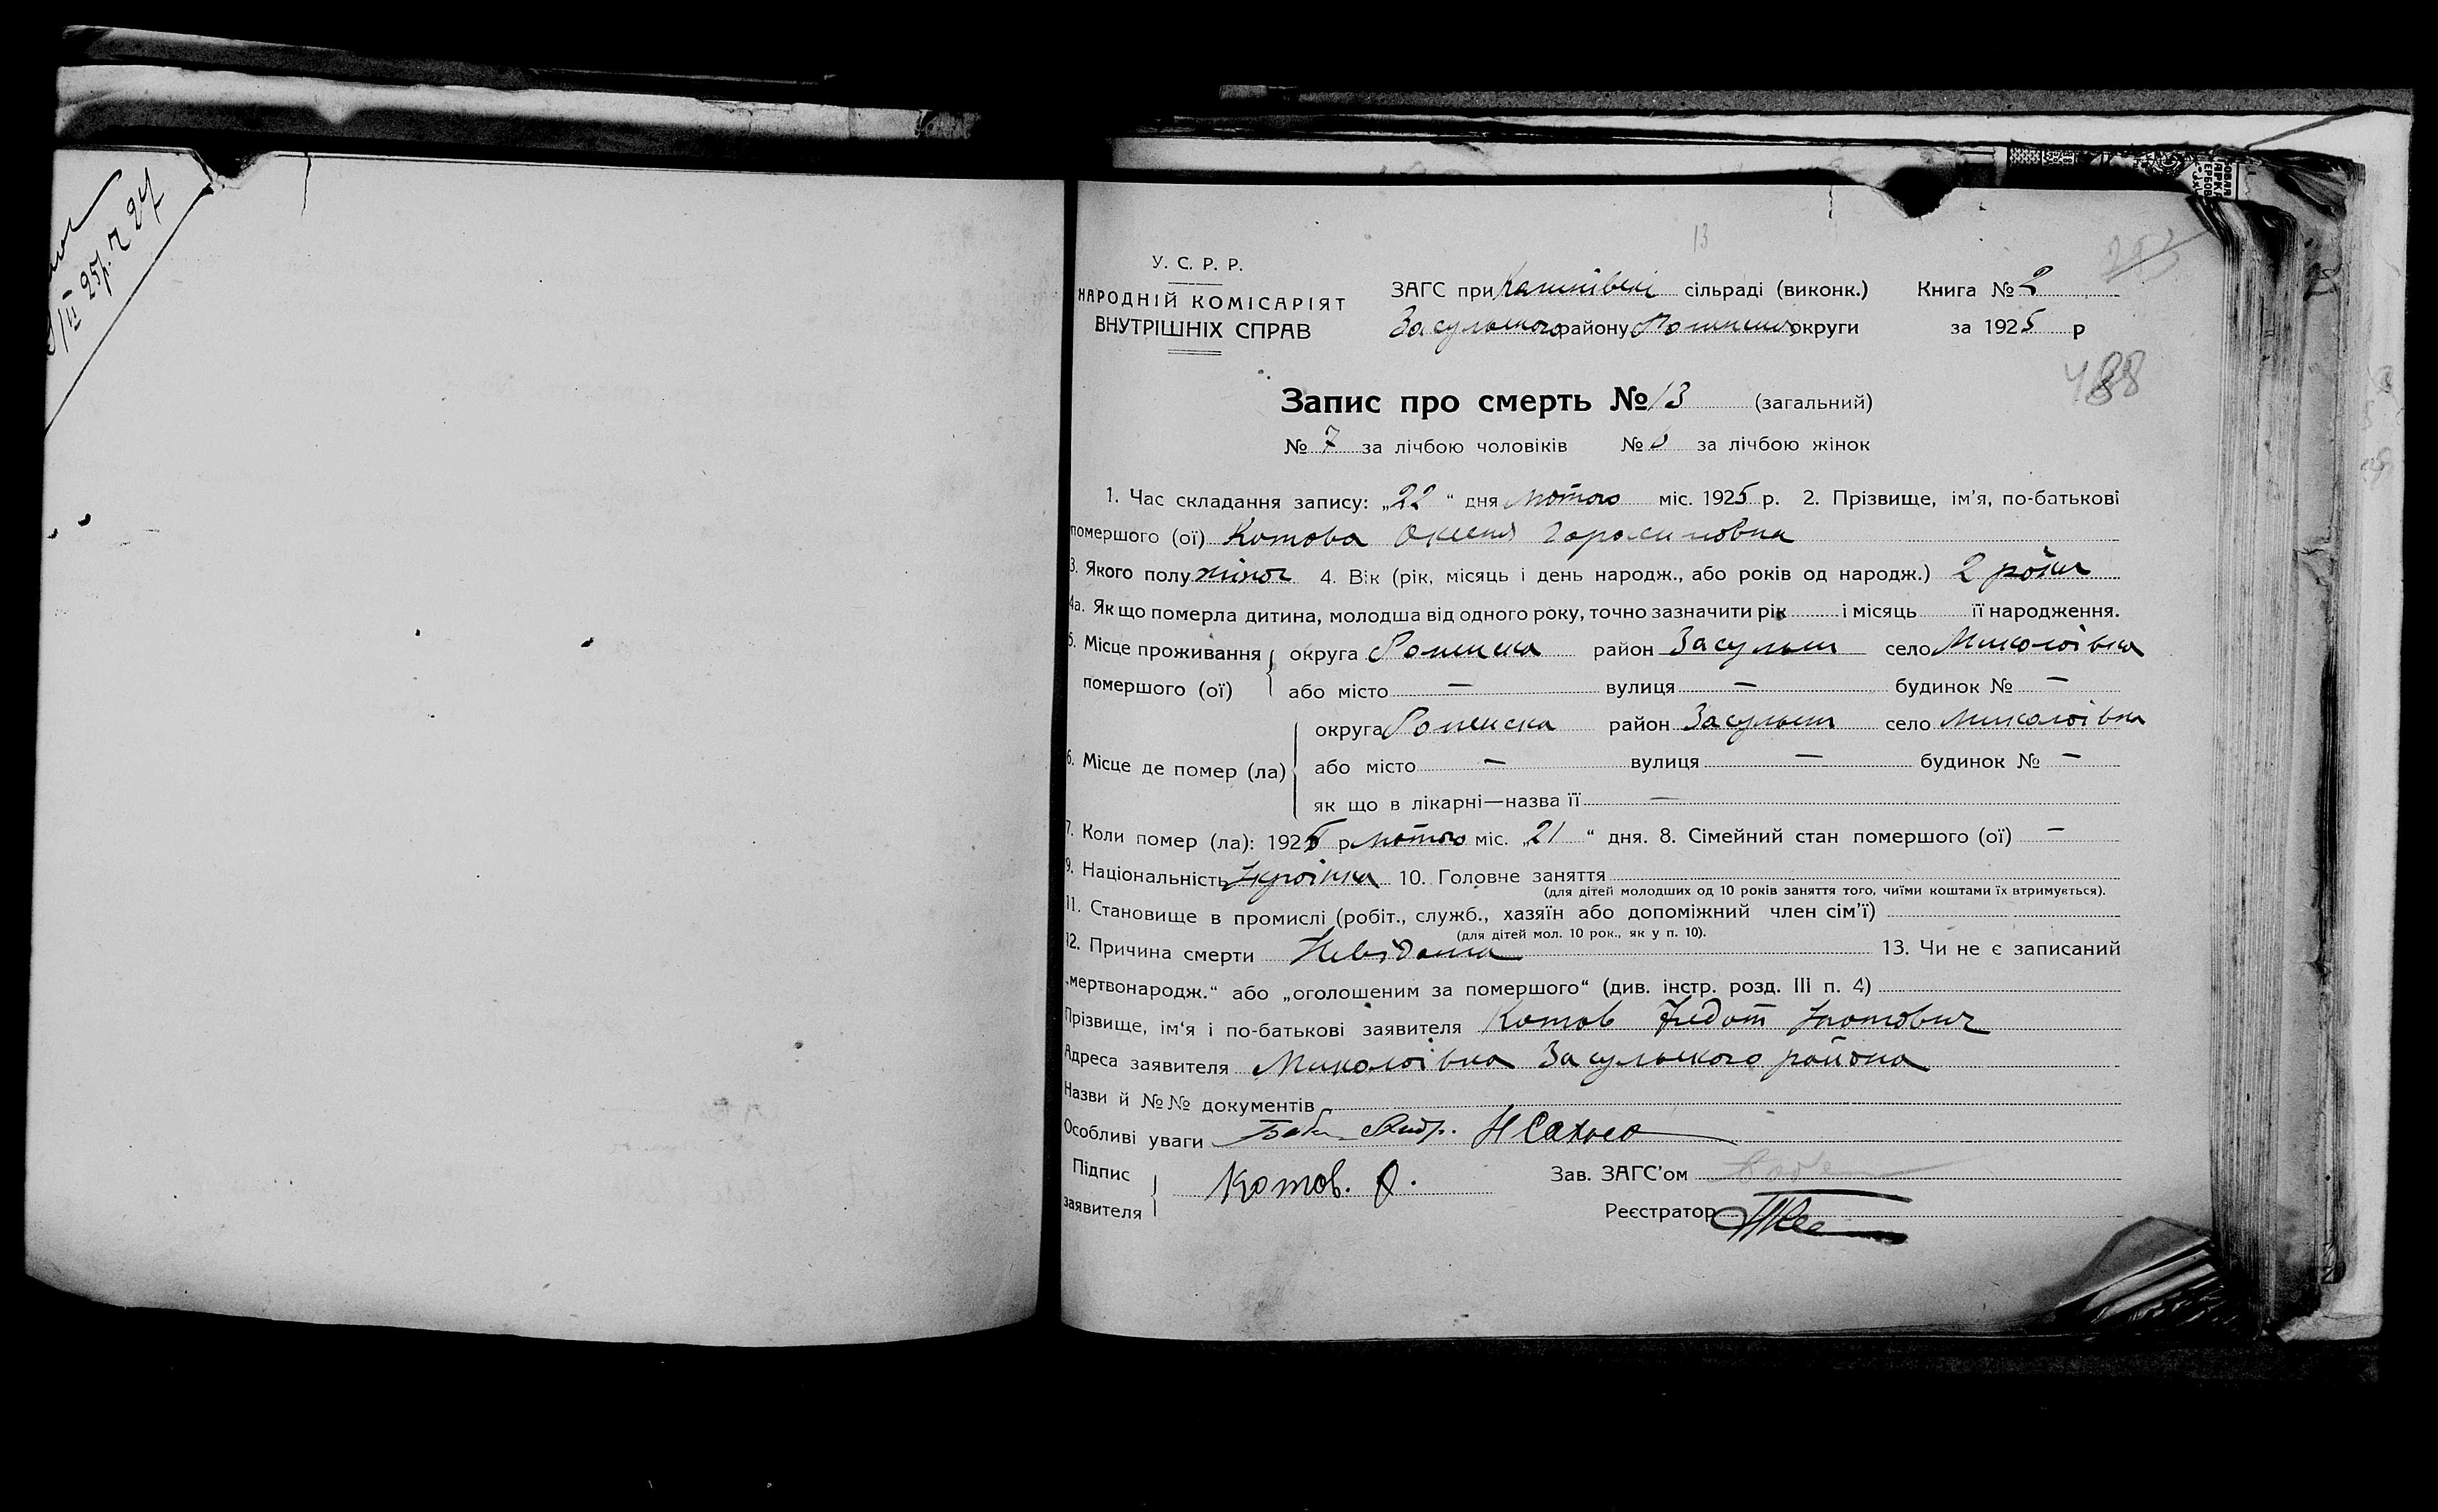 /II 25р. 2 24
13
У. С. Р. Р.
НАРОДНІЙ КОМІСАРІЯТ
ВНУТРІШНІХ СПРАВ
ЗАГС при сільраді (виконк.) Книга № 2
Засульского району Роменськ округи за 1925 р
488
Запис про смерть № 13 (загальний)
№ 7 за лічбою чоловіків № 6 за лічбою жінок
1. Час складання запису: „22“ дня лютого міс. 1925 р. 2. Прізвище, ім'я, по-батькові
помершого (ої) Котова Оксеня Горасимовна
3. Якого полу жіноч 4. Вік (рік, місяць і день народж., або років од народж.) 2 роки
4а. Як що померла дитина, молодша від одного року, точно зазначити рік і місяць її народження.
5. Місце проживання округа Роменска район Засульск село Миколоївка
помершого (ої) або місто — вулиця — будинок № —
округа Роменска район Засульск село Миколоївка
6. Місце де помер (ла) або місто — вулиця — будинок № —
як що в лікарні—назва її —
7. Коли помер (ла): 1925 р лютого міс. „21“ дня. 8. Сімейний стан помершого (ої) —
9. Національність Україінка 10. Головне заняття
(для дітей молодших од 10 років заняття того, чиїми коштами їх втримується).
11. Становище в промислі (робіт., служб., хазяїн або допоміжний член сім'ї)
(для дітей мол. 10 рок., як у п. 10).
12. Причина смерти Невідома 13. Чи не є записаний
„мертвонародж.“ або „оголошеним за помершого“ (див. інстр. розд. III п. 4)
Прізвище, ім'я і по-батькові заявителя Котов Федот
Адреса заявителя Миколоївка Засульского района
Назви й №№ документів
Особливі уваги
Підпис
заявителя Котов. Ф.
Зав. ЗАГС'ом
Реєстратор